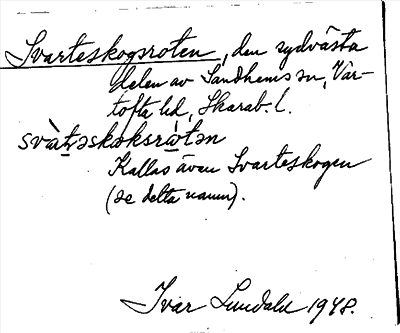 Svarteskogsroten, den sydvästa
delen av Sandhems sn, Var-
tofta hd, Skarab. l.
svàtəskoksròtən
Kallas även Svarteskogen
(se detta namn).
Ivar Lundahl 1948.